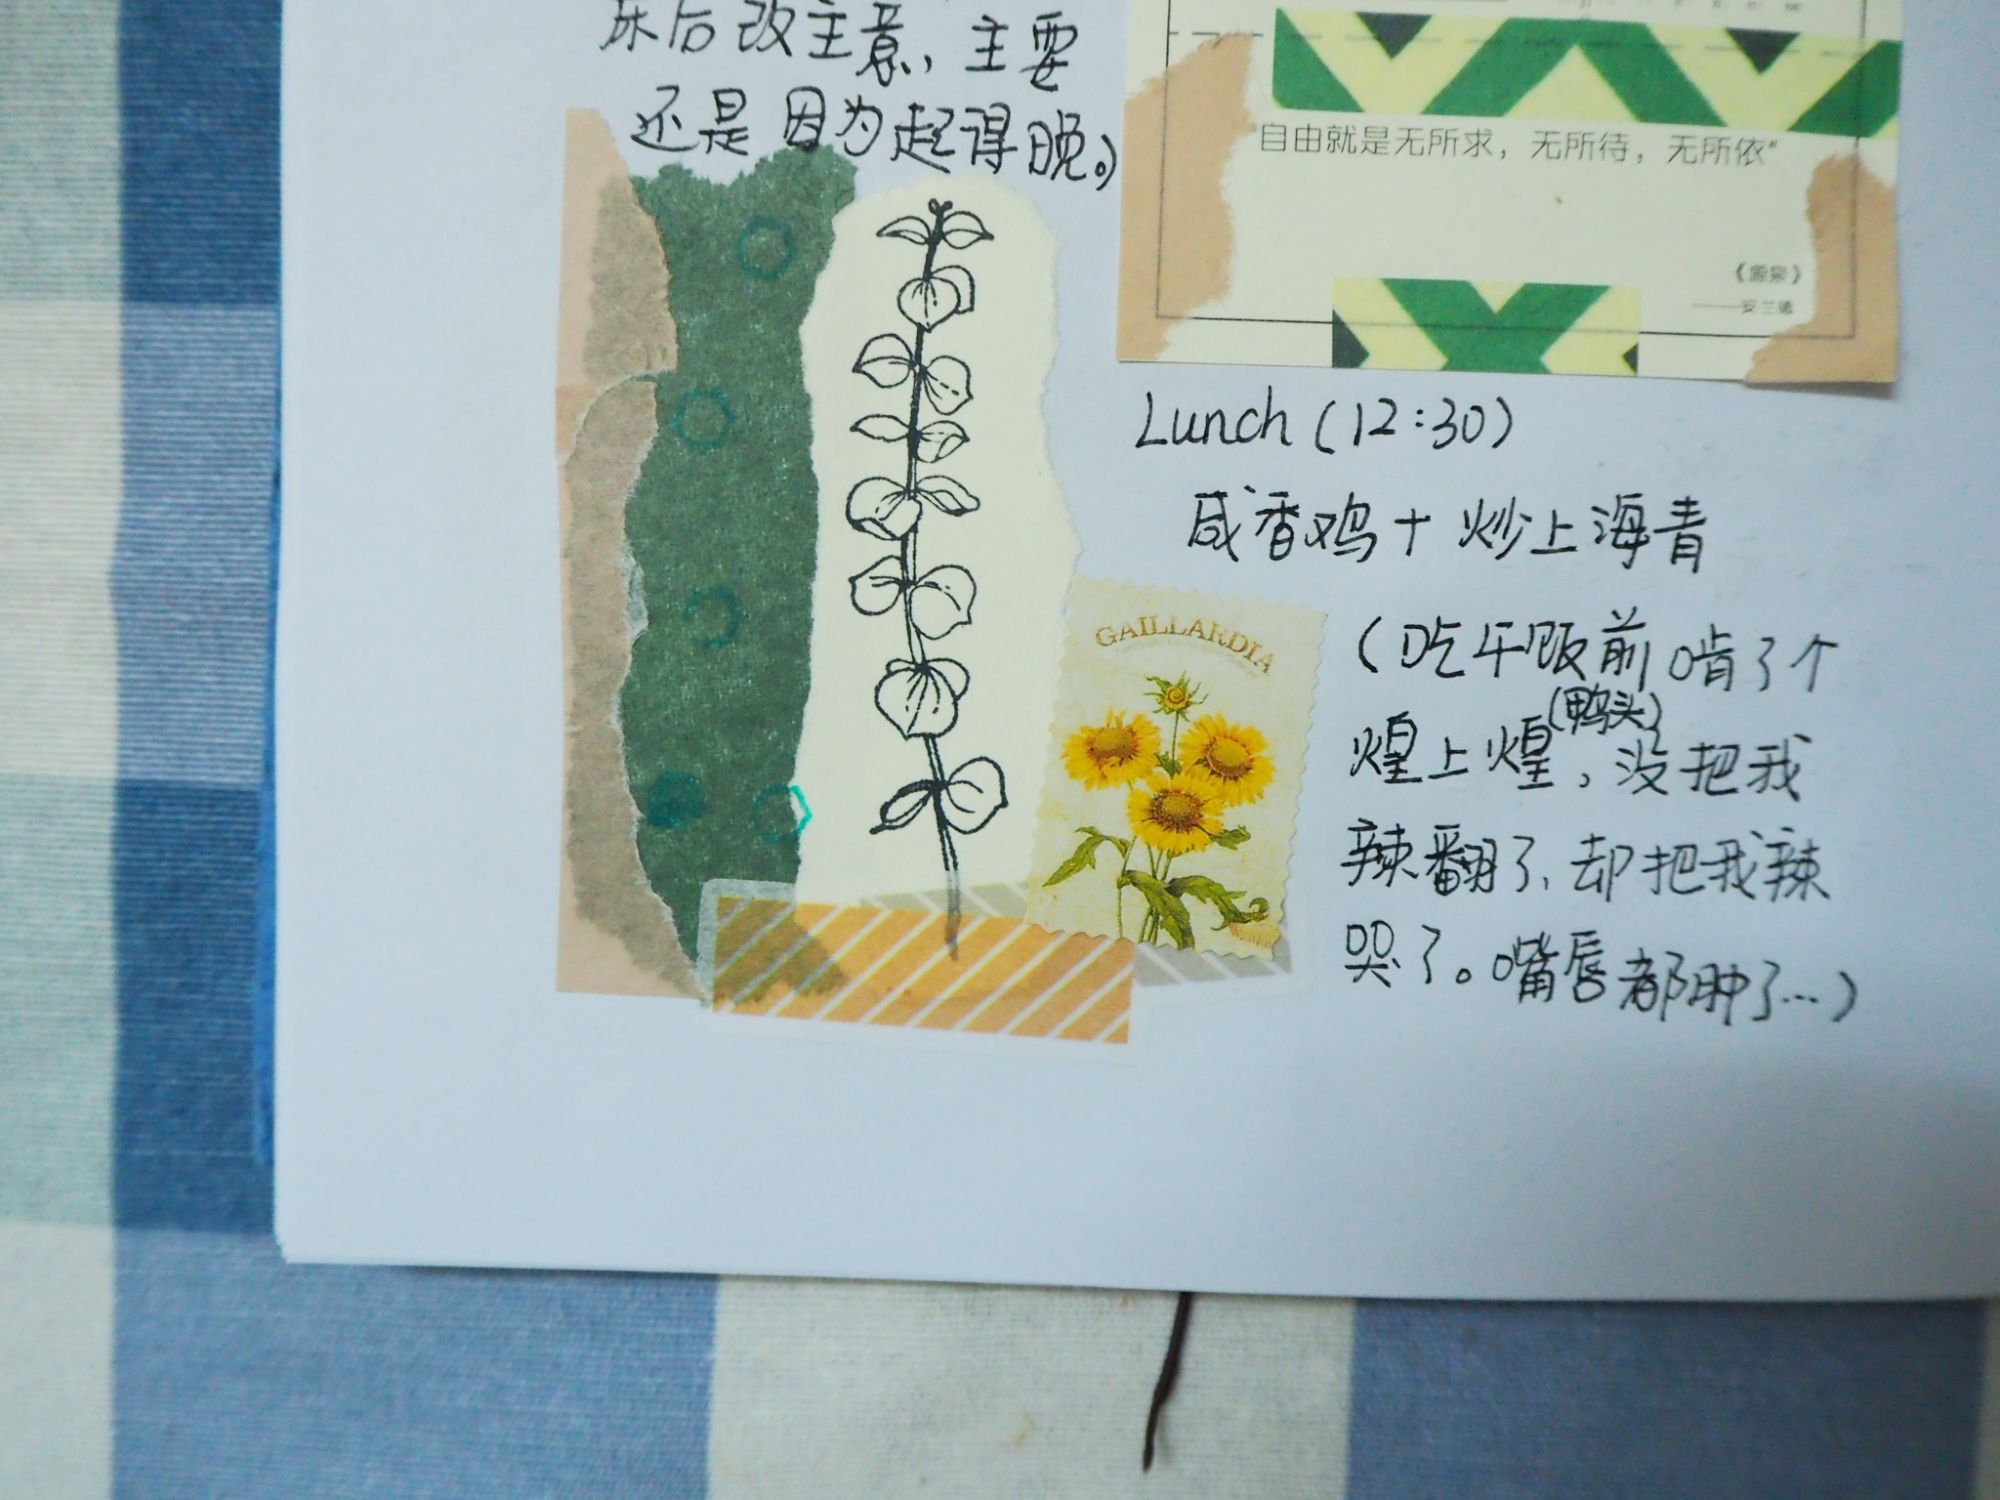 床后改主意，主要
还是因为起得晚。)
"自由就是无所求，无所待，无所依"
《源泉》
——安兰德
Lunch (12:30)
咸香鸡+炒上海青
(吃午饭前啃了个
煌上煌(鸭头)，没把我
辣翻了，却把我辣
哭了。嘴唇都肿了…)
GAILLARDIA